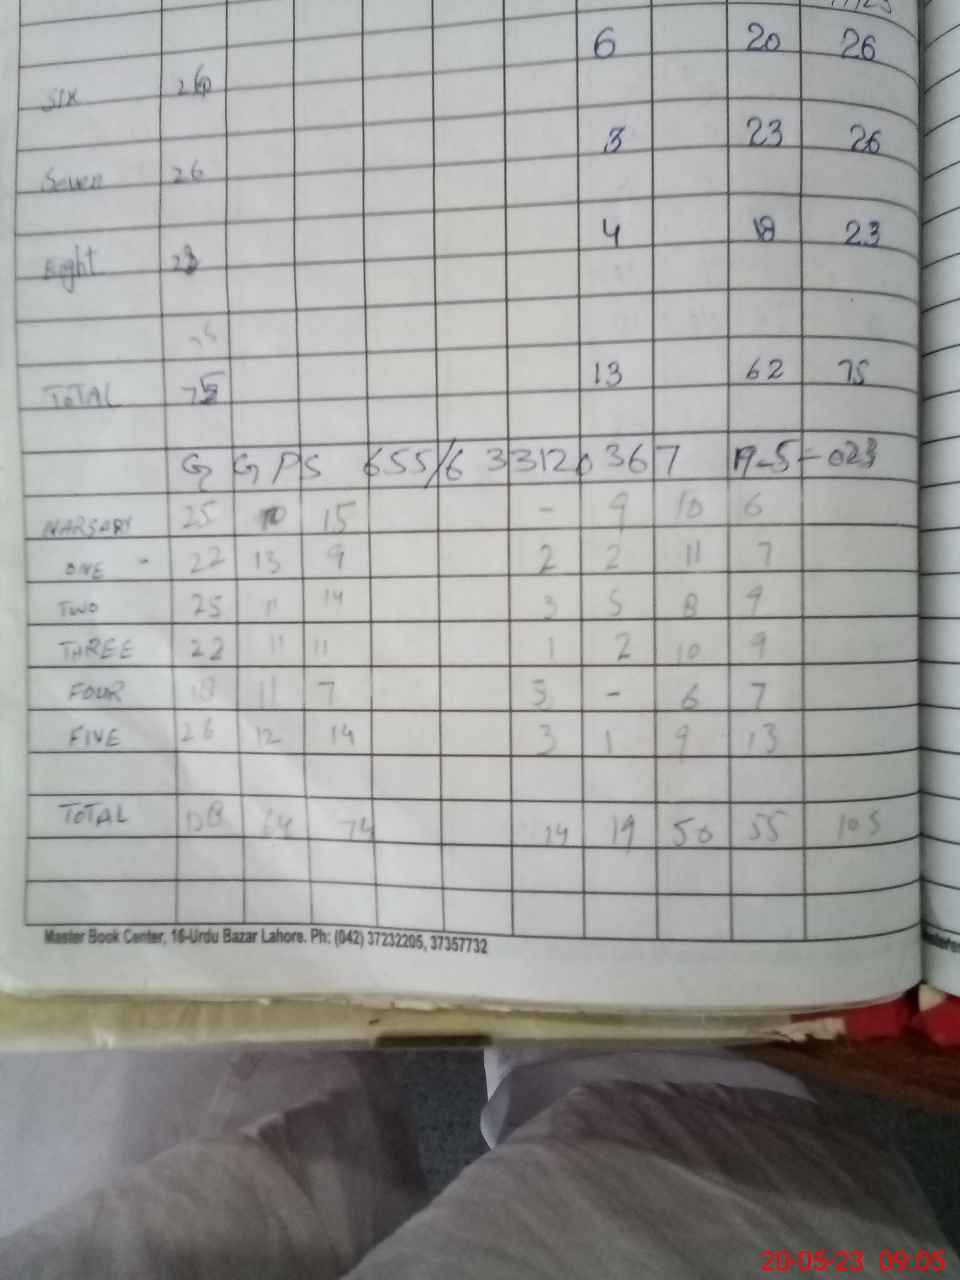 6 20 26
SIX 26
3 23 26
Seven 26
4 18 23
Eight 23
TOTAL 75 13 62 75
G GPS 655/6 33120 367 19-5-023
NARSARY 25 10 15 - 9 10 6
ONE - 22 13 9 2 2 11 7
TWO 25 11 14 3 5 8 9
THREE 22 11 11 1 2 10 9
FOUR 18 11 7 5 - 6 7
FIVE 26 12 14 3 1 9 13
TOTAL 138 64 74 14 19 50 55 105
Master Book Center, 16-Urdu Bazar Lahore. Ph: (042) 37232205, 37357732
20-05-23 09:05